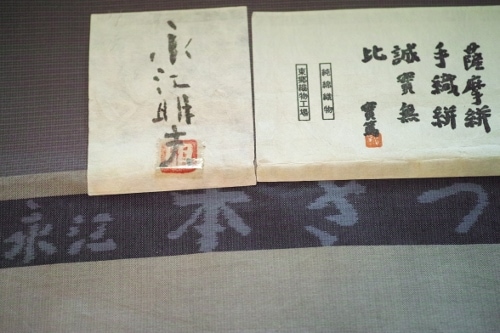 薩摩絣
手織絣
誠實無
比 實篤
純綿織物
東郷織物工場
永江明夫
永江 本きつ